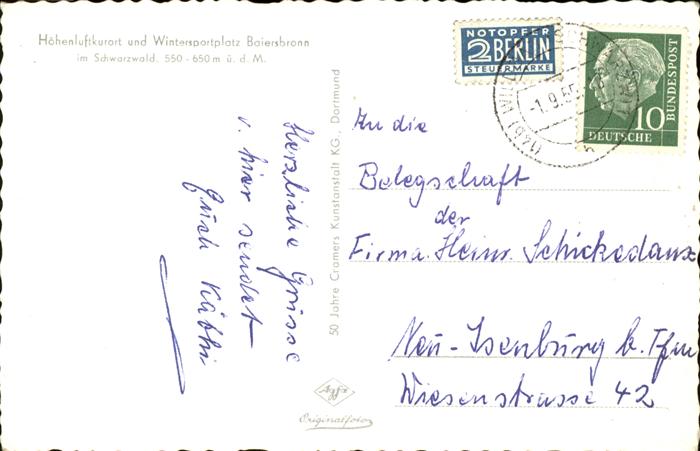 Höhenluftkurort und Wintersportplatz Baiersbronn
im Schwarzwald. 550-650 m ü. d. M.
NOTOPFER
2 BERLIN
STEUERMARKE
-1.9.55
10
DEUTSCHE
BUNDESPOST
Herzliche Grüsse
v. hier sendet
Euch Käthi
50 Jahre Cramers Kunstanstalt KG., Dortmund
An die
Belegschaft
der
Firma Heinr. Schickedanz
Neu-Isenburg b. Ffm
Wiesenstrasse 42
Agfa
Originalfoto